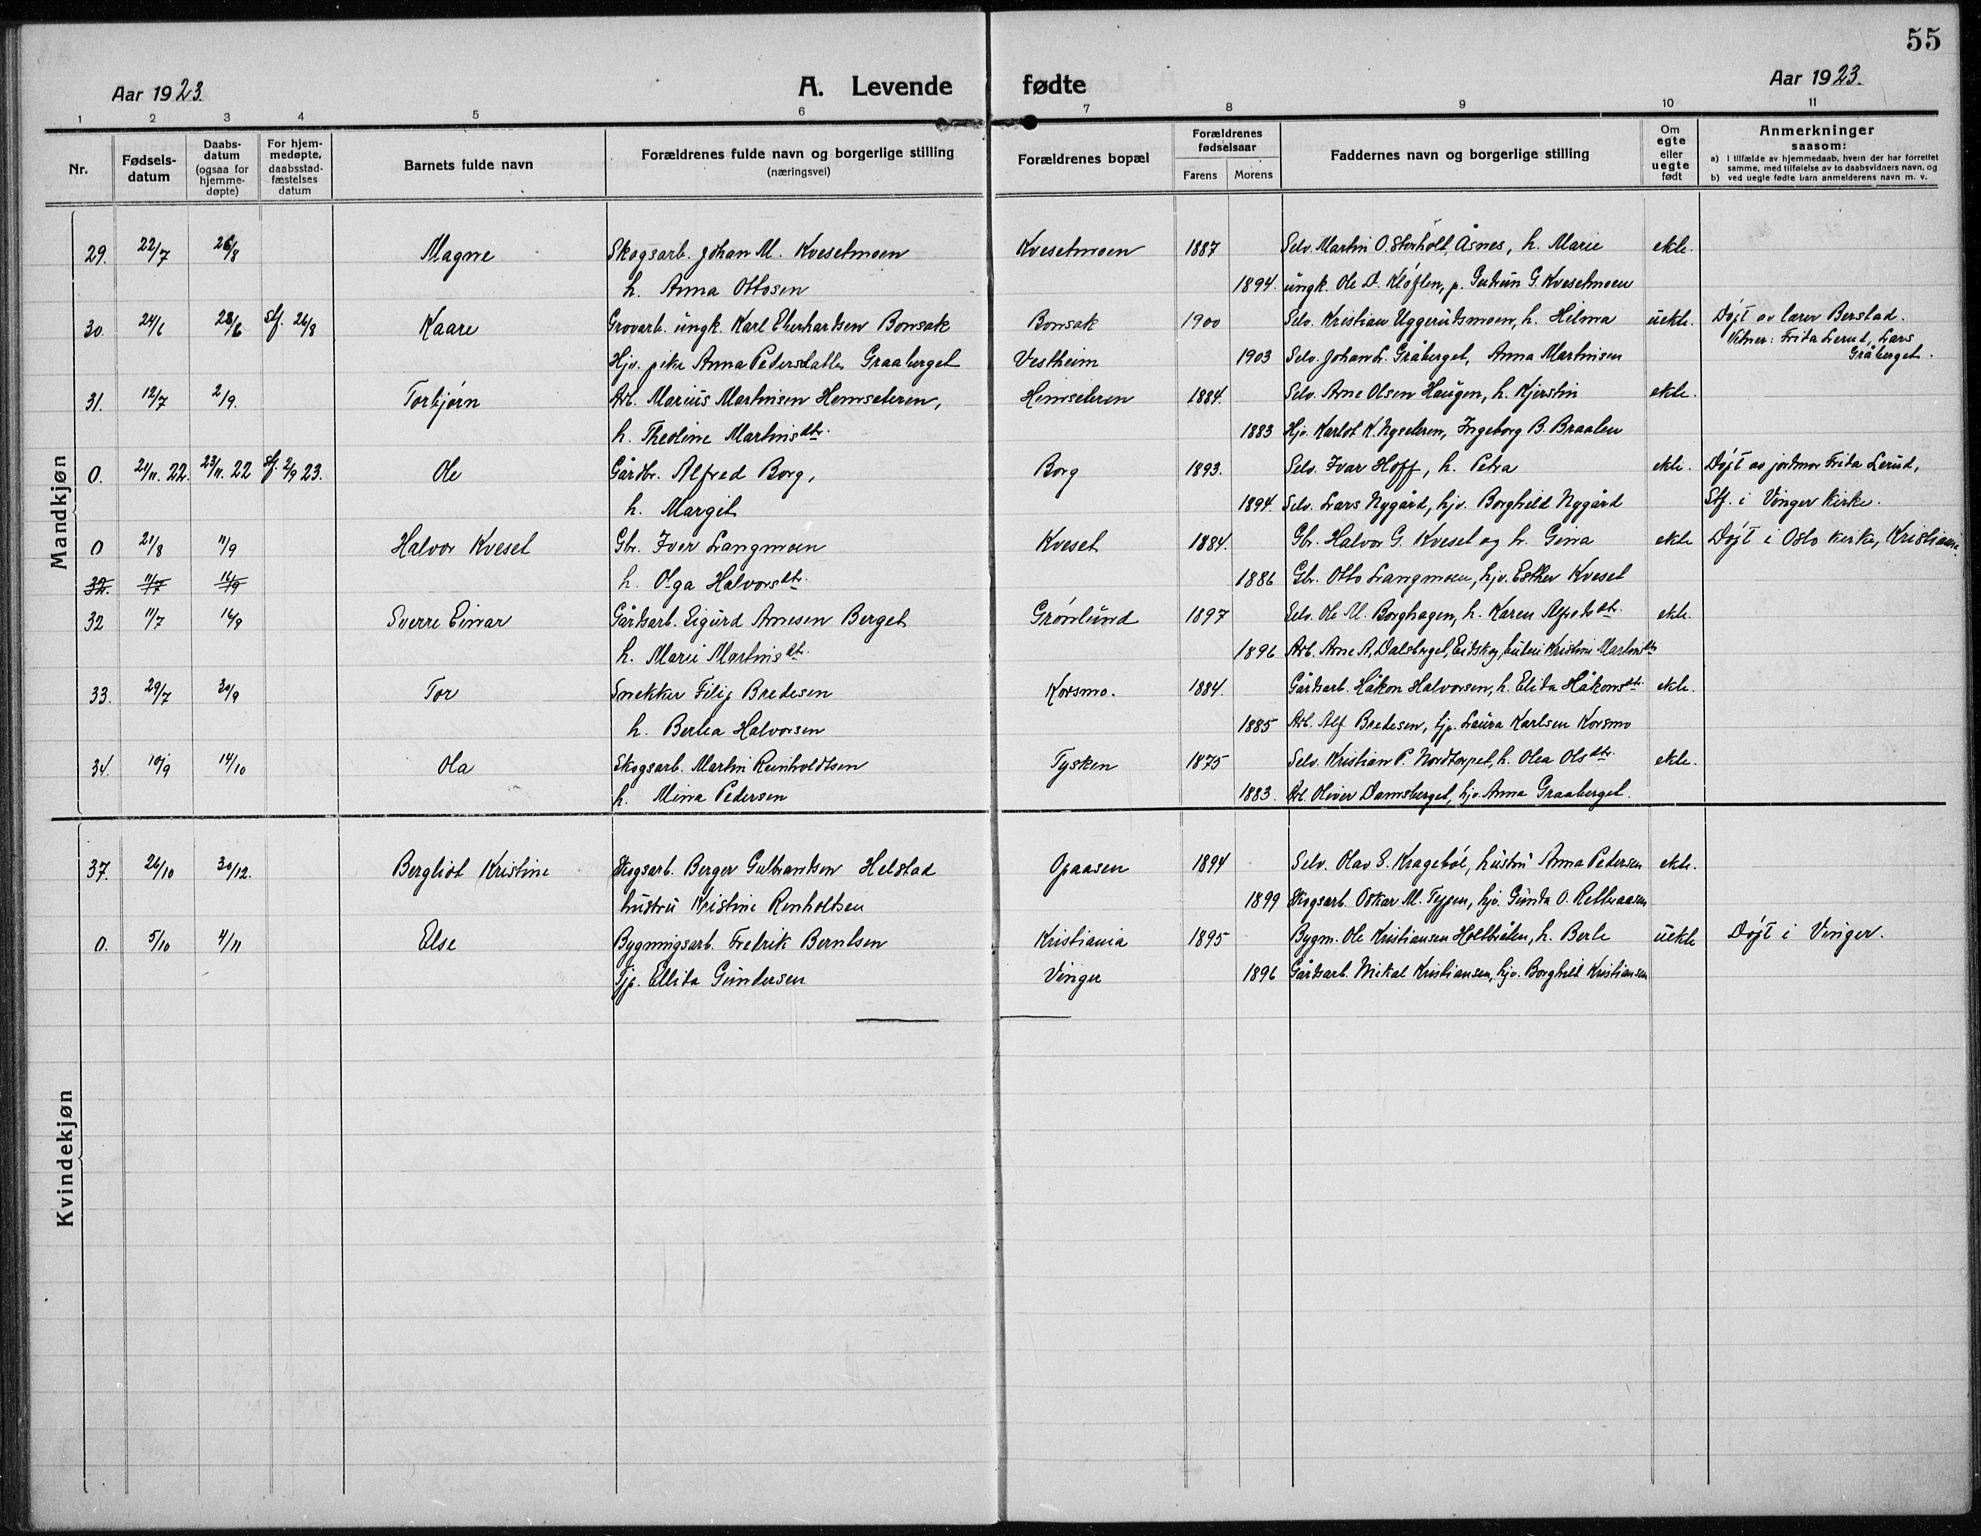 55
Aar 1923.
A. Levende fødte
Aar 1923.
1 2 3 4 5 6 7 8 9 10 11
Nr.
Fødsels-
datum
Daabs-
datum
(ogsaa for
hjemme-
døpte)
For hjem-
medøpte,
daabsstad-
fæstelses
datum
Barnets fulde navn
Forældrenes fulde navn og borgerlige stilling
(næringsvei)
Forældrenes bopæl
Forældrenes
fødselsaar
Farens Morens
Faddernes navn og borgerlige stilling
Om
egte
eller
uegte
født
Anmerkninger
saasom:
a) I tilfælde av hjemmedaab, hvem der har forrettet
samme, med tilføielse av to daabsvidners navn, og
b) ved uegte fødte barn anmelderens navn m. v.
Mandkjøn
29. 22/7 26/8 Magne Skogsarb. Johan M. Kvesetmoen Kvesetmoen 1887 Selv. Martin O. Storholt, Åsnes, h. Marie ekte.
h. Anna Ottosen 1894. ungk. Ole D. Kløften, p. Gudrun G. Kvesetmoen
30. 24/6 28/6 stf. 26/8 Kaare Grovarb. ungk. Karl Eberhardsen Bonsak Bonsak 1900 Selv. Kristian Uggerudsmoen, h. Hilma uekte. Døpt av lærer Berstad.
Vitner: Frida Lerud, Lars
Hjv. pike Anna Pedersdatter Graaberget Vestheim 1903 Selv. Johan L. Gråberget, Anna Martinsen Gråberget.
31. 12/7 2/9. Torbjørn Arb. Marius Martinsen Hemseteren, Hemseteren 1884. Selv. Arne Olsen Haugen, h. Kjerstin ekte.
h. Theoline Martinsdtr. 1883 Hjv. Karlot K. Nyseteren, Ingeborg B. Braaten
0. 21/11. 22. 23/11. 22 stf. 2/9 23. Ole Gårdbr. Alfred Borg, Borg 1893. Selv. Ivar Hoff, h. Petra ekte. Døpt av jordmor Frida Lerud,
h. Margit 1894. Selv. Lars Nygård, hjv. Borghild Nygård Stf. i Vinger kirke.
0 21/8 11/9 Halvor Kveset Gbr. Iver Langmoen Kveset 1884. Gbr. Halvor G. Kveset og h. Gina ekte Døpt i Oslo kirke, Kristiania.
32. 11/7 16/9 h. Olga Halvorsdtr. 1886 Gbr. Otto Langmoen, hjv. Esther Kveset
32 11/7 16/9 Sverre Einar Gårdsarb. Sigurd Arnesen Berget Grønlund 1897 Selv. Ole M. Borghagen, h. Karen Alfredsdtr. ekte.
h. Marie Martinsdtr. 1896 Arb. Arne A. Dalsberget, Eidskog, Kristine Martinsdtr
33. 29/7 30/9 Tor Snekker Filip Bredesen Korsmo. 1884. Gårdsarb. Håkon Halvorsen, h. Elida Håkonsdtr. ekte.
h. Bertea Halvorsen 1885 Arb. Alf Bredesen, tjp. Laura Karlsen Korsmo
34. 10/9 14/10 Ola Skogsarb. Martin Reinholdtsen Tysken 1875 Selv. Kristian P. Nordtorpet, h. Olea Olsdtr. ekte.
h. Mina Pedersen 1883. Arb. Oliver Damsberget, hjv. Anna Graaberget.
Kvindekjøn
37. 26/10 30/12. Bergliot Kristine Skogsarb. Berger Gulbrandsen Helstad Opaasen 1894 Selv. Olav S. Kragebøl, hustru Anna Pedersen ekte.
hustru Kristine Renholtsen 1899 Skogsarb. Oskar M. Tyssen, hjv. Gunda O. Rotberaasen
0. 5/10 4/11 Else Bygningsarb. Fredrik Berntsen Kristiania 1895 Bygm. Ole Kristiansen Holtbråten, h. Berte uekte Døpt i Vinger.
Tjp. Ellida Gundersen Vinger 1896 Gårdsarb. Mikal Kristiansen, hjv. Borghild Kristiansen